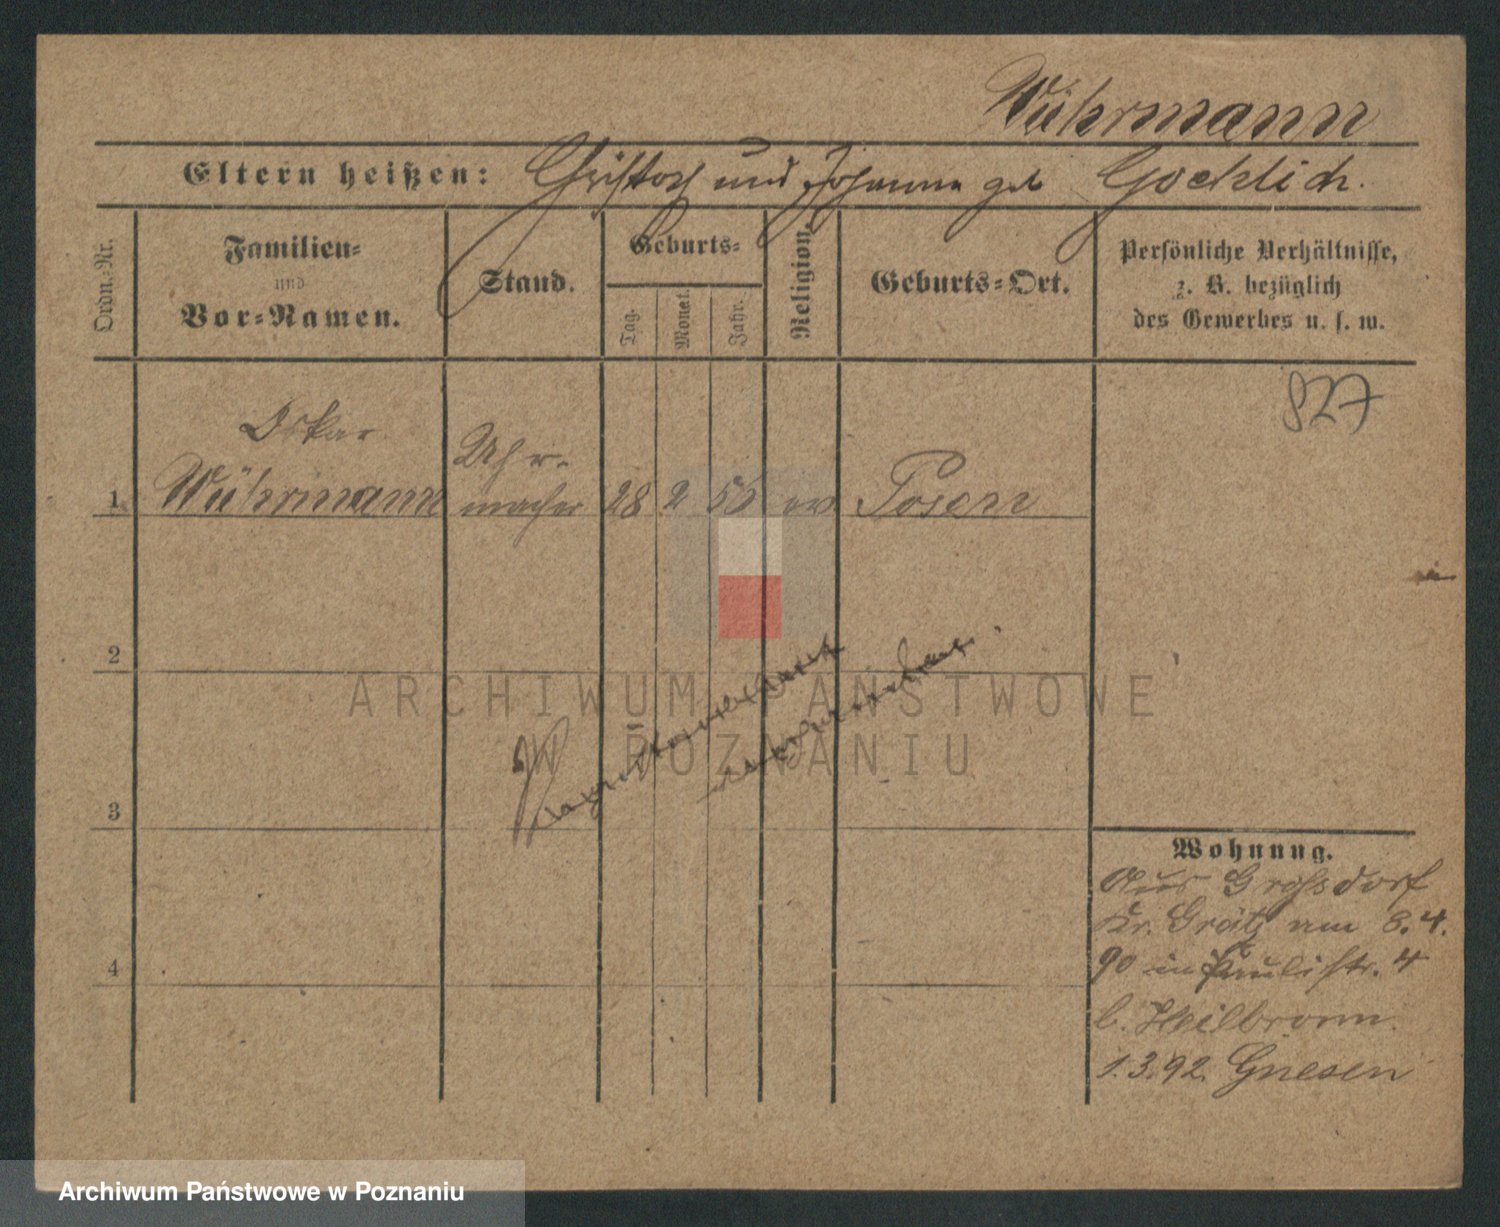 Wührmann
Eltern heißen: Christoph und Johanna geb Gocklich.
Ordn.-Nr.
Familien-
und
Vor-Namen.
Stand.
Geburts-
Tag.
Monat.
Jahr.
Religion.
Geburts-Ort.
Persönliche Verhältnisse,
z. B. bezüglich
des Gewerbes u. s. w.
827
Oskar
Uhr-
1. Wührmann macher 28 2 55 ev Posen
2
ARCHIWUM PAŃSTWOWE
W POZNANIU
3
Wohnung.
Aus Grossdorf
Kr. Grätz am 8.4.
90 in Paulistr. 4
b. Heilbronn.
1.3.92. Gnesen
4
Archiwum Państwowe w Poznaniu